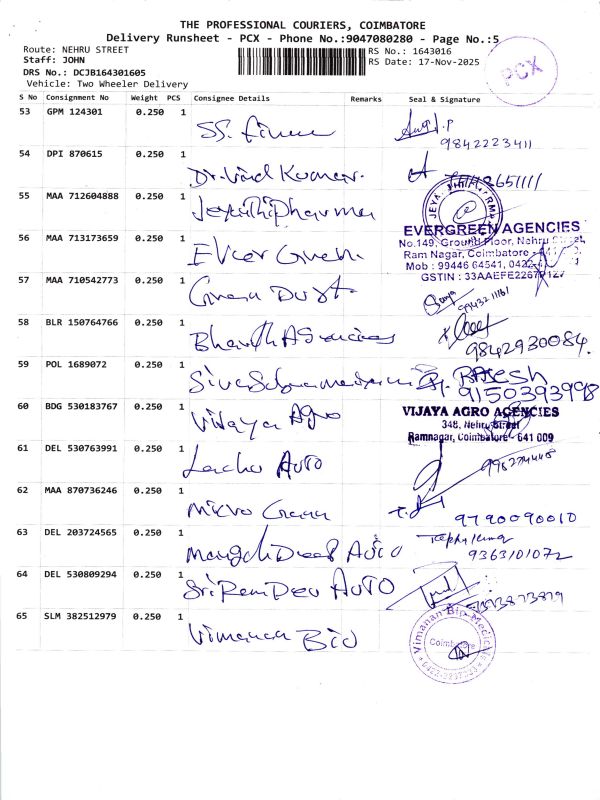 THE PROFESSIONAL COURIERS, COIMBATORE
Delivery Runsheet - PCX - Phone No.:9047080280 - Page No.:5
Route: NEHRU STREET
RS No.: 1643016
Staff: JOHN
RS Date: 17-Nov-2025
DRS No.: DCJB164301605
Vehicle: Two Wheeler Delivery
PCX
S No Consignment No Weight PCS Consignee Details Remarks Seal & Signature
53 GPM 124301 0.250 1
9842223411
54 DPI 870615 0.250 1
Dr. Vinod Kumar.
55 MAA 712604888 0.250 1
Jeyanthi Pharma
56 MAA 713173659 0.250 1
Ever Green
EVERGREEN AGENCIES
No.149, Ground Floor, Nehru Street,
Ram Nagar, Coimbatore
Mob : 99446 64541, 0422
GSTIN : 33AAEFE2267
57 MAA 710542773 0.250 1
58 BLR 150764766 0.250 1
Bharath Agencies
9842930084.
59 POL 1689072 0.250 1
Siva Subramaniam
9150393998
60 BDG 530183767 0.250 1
Vijaya Agro
VIJAYA AGRO AGENCIES
348, Nehru Street
Ramnagar, Coimbatore - 641 009
61 DEL 530763991 0.250 1
Auto
62 MAA 870736246 0.250 1
Micro
9790090010
63 DEL 203724565 0.250 1
Mangal Deep Auto
9363101072
64 DEL 530809294 0.250 1
Sri Ram Dev AUTO
65 SLM 382512979 0.250 1
Vimanan Bio
Vimanan Bio Medicals
Coimbatore